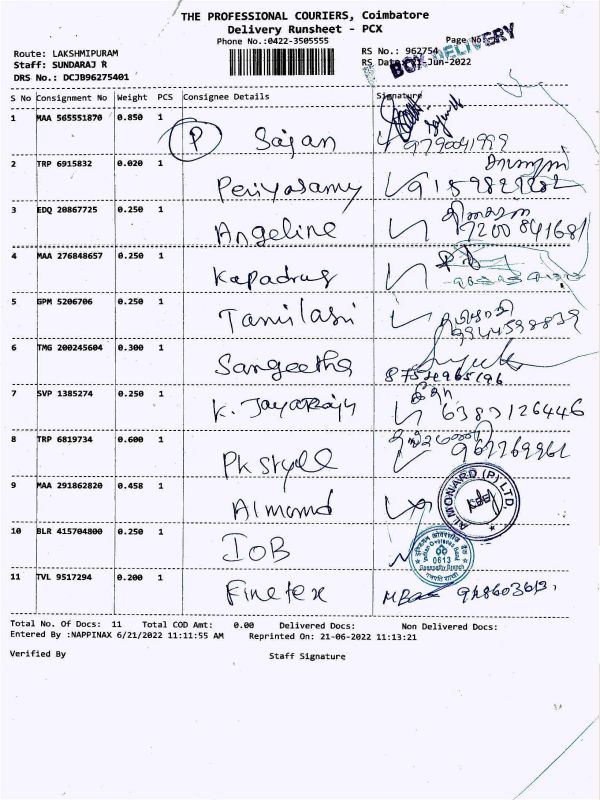 THE PROFESSIONAL COURIERS, Coimbatore
Delivery Runsheet - PCX
Phone No.:0422-3505555
Page No
BOX DELIVERY
Route: LAKSHMIPURAM
RS No.: 962754
Staff: SUNDARAJ R
RS Date: 21-Jun-2022
DRS No.: DCJB96275401
S No Consignment No Weight PCS Consignee Details Signature
1 MAA 565551870 0.850 1 P Sajan 9790041999
2 TRP 6915832 0.020 1 Periyasamy
3 EDQ 20867725 0.250 1 Angeline 7200841681
4 MAA 276848657 0.250 1 Kapadrug
5 GPM 5206706 0.250 1 Tamilasi 9944598839
6 TMG 200245604 0.300 1 Sangeetha
7 SVP 1385274 0.250 1 K. Jayaraju 6383126446
8 TRP 6819734 0.600 1 PK Style
9 MAA 291862820 0.458 1 Almond ALMONARD (P) LTD.
10 BLR 415704800 0.250 1 IOB Indian Overseas Bank 0613 Ganapathy Branch
11 TVL 9517294 0.200 1 Finetex
Total No. Of Docs: 11 Total COD Amt: 0.00 Delivered Docs: Non Delivered Docs:
Entered By :NAPPINAX 6/21/2022 11:11:55 AM Reprinted On: 21-06-2022 11:13:21
Verified By Staff Signature